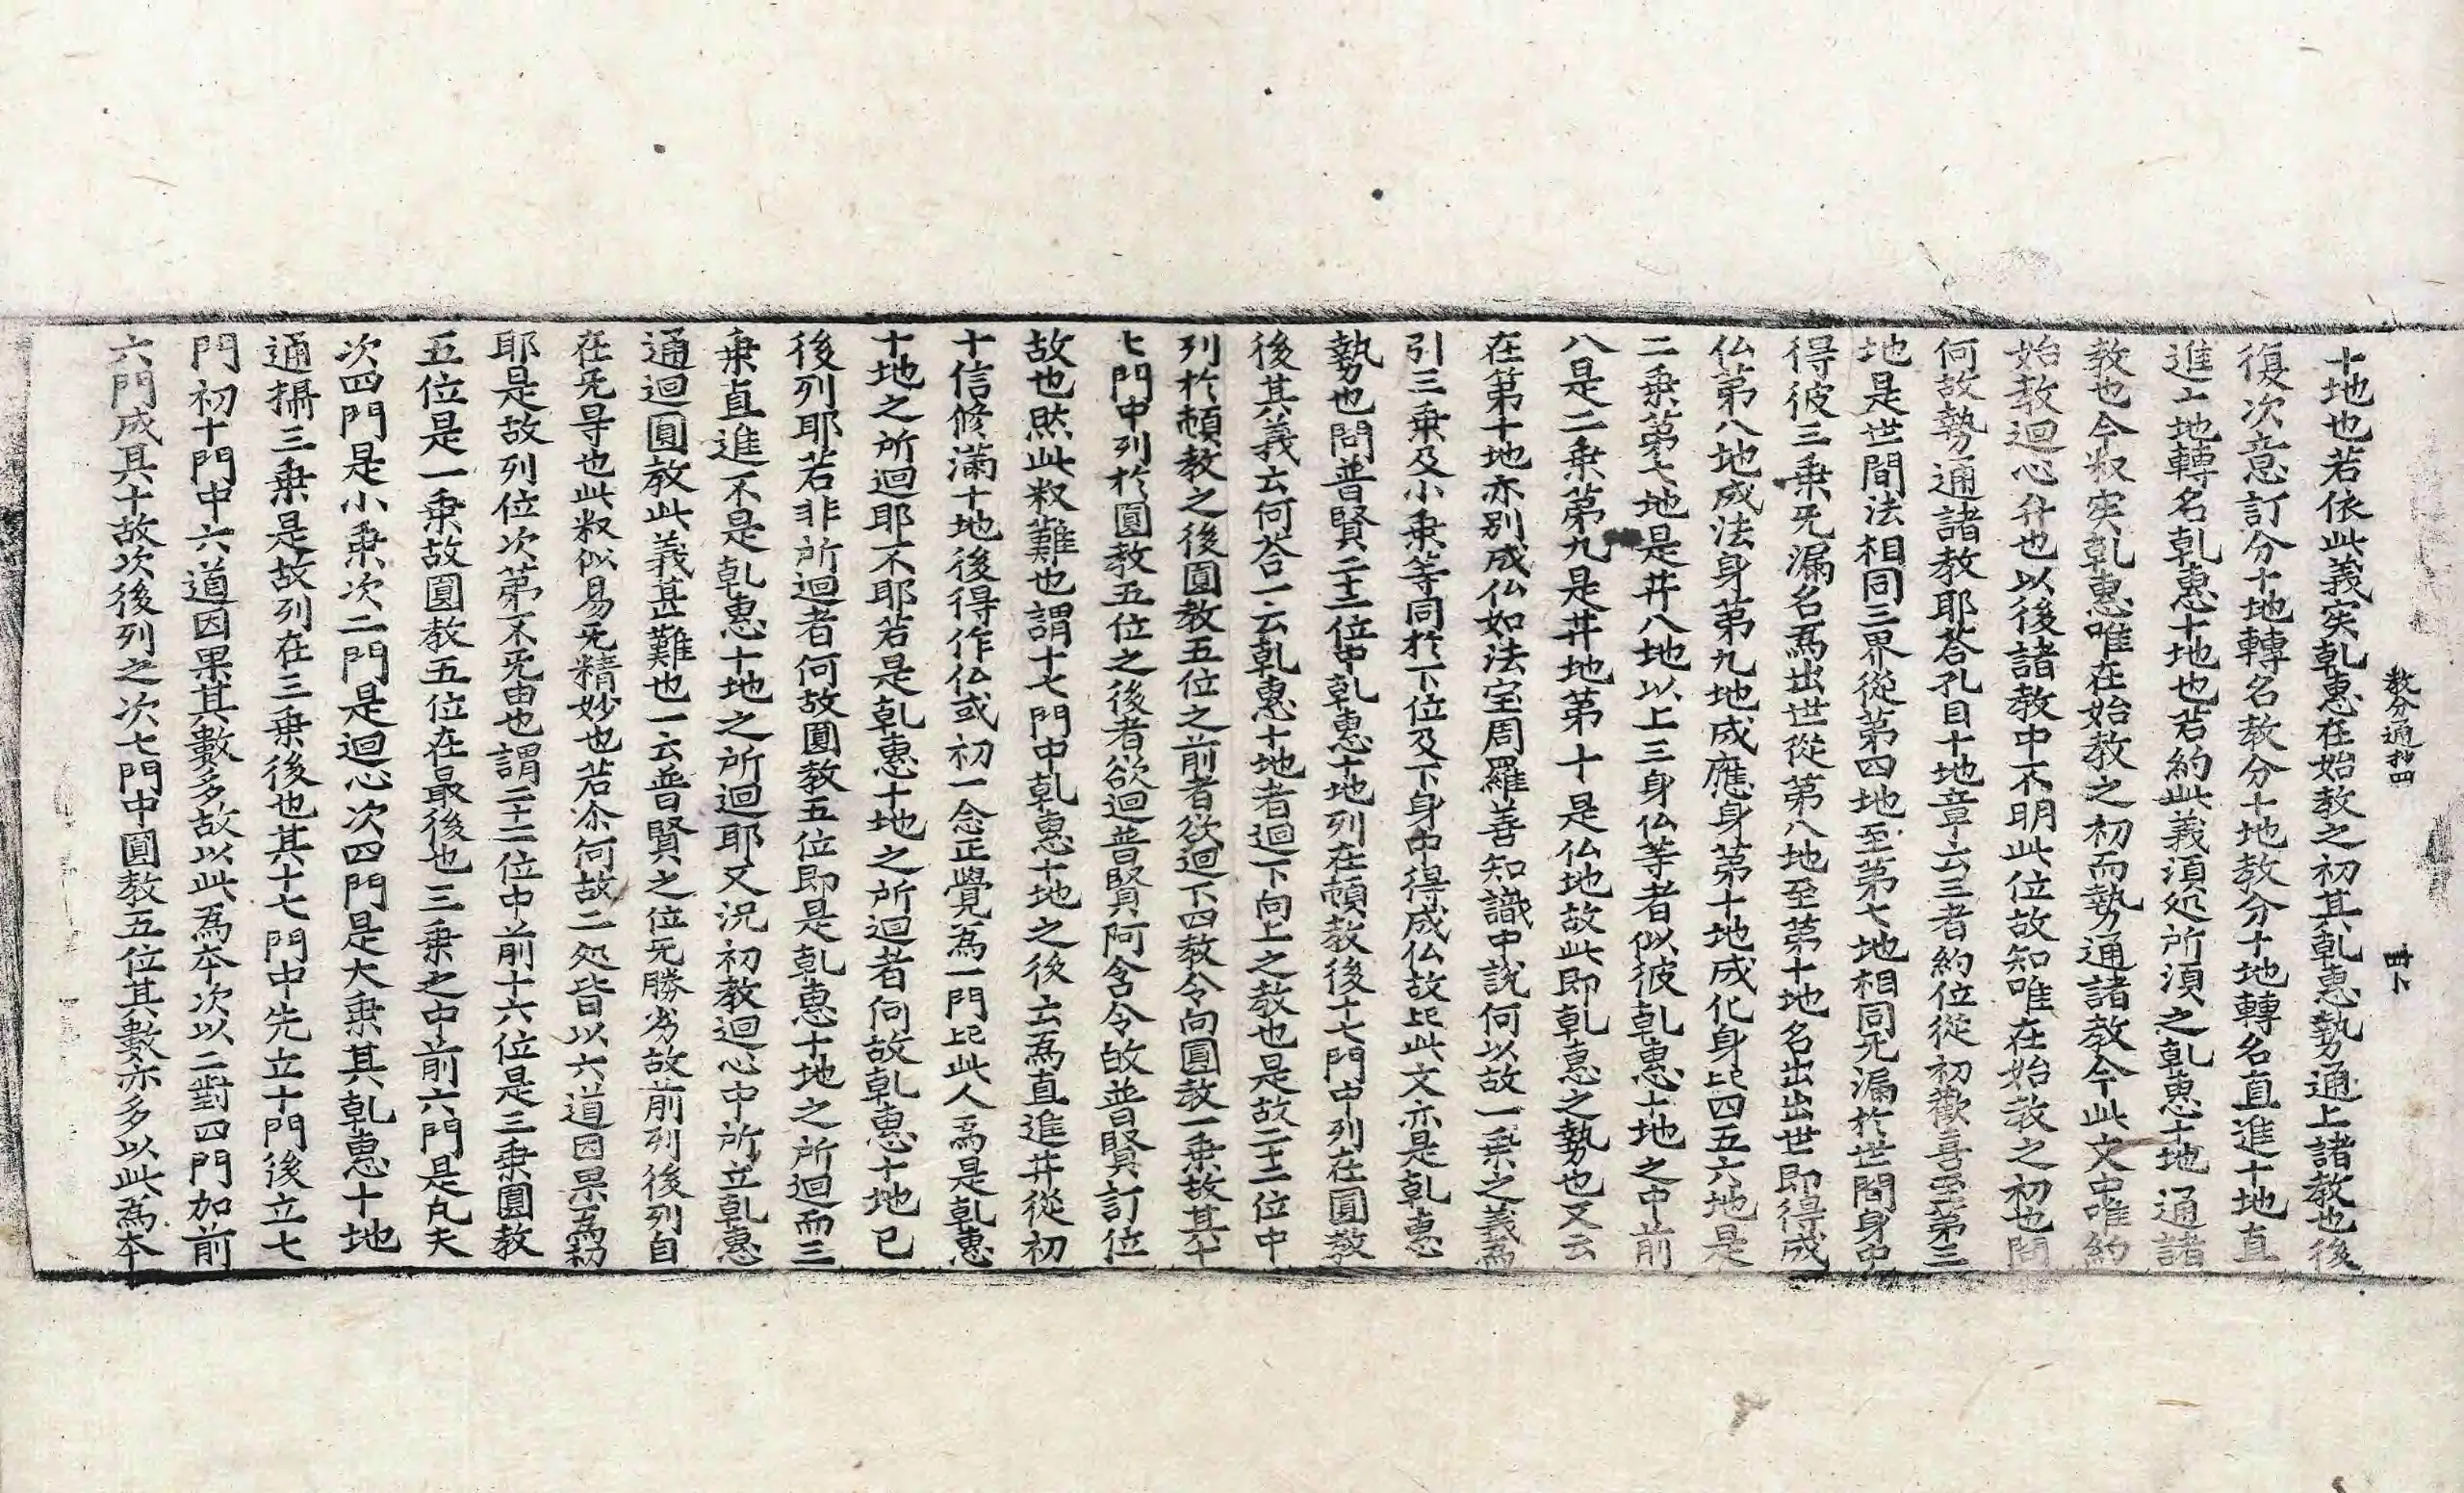 教分通抄四
十地也若依此義実乹惠在始教之初其乹惠勢通上諸教也後
復次意訂分十地轉名教分十地教分十地轉名直進十地直
進十地轉名乹惠十地也若約此義湏処所湏之乹惠十地通諸
教也今釈実乹惠唯在始教之初而勢通諸教今此文中唯約
始教迴心弁也以後諸教中不明此位故知唯在始教之初也問
何故勢通諸教耶荅孔目十地章云三者約位從初歡喜至第三
地是世間法相同三界從第四地至第七地相同旡漏於世間身中
得彼三乗旡漏名爲出世從第八地至第十地名出出世即得成
仏第八地成法身第九地成應身第十地成化身比四五六地是
二乗第七地是井八地以上三身仏等者似彼乹惠十地之中前
八是二乗第九是井地第十是仏地故此即乹惠之勢也又云
在第十地亦别成仏如法宝周羅善知識中說何以故一乗之義爲
引三乗及小乗等同於下位及下身中得成仏故比此文亦是乹惠
勢也問普賢二十二位中乹惠十地列在頓教後十七門中列在圓教
後其義云何荅一云乹惠十地者迴下向上之教也是故二十二位中
列於頓教之後圓教五位之前者欲迴下四教令向圓教一乗故其十
七門中列於圓教五位之後者欲迴普賢阿含令故普賢訂位
故也然此釈難也謂十七門中乹惠十地之後云爲直進井從初
十信修滿十地後得作仏或初一念正覺為一門比此人爲是乹惠
十地之所迴耶不耶若是乹惠十地之所迴者何故乹惠十地已
後列耶若非所迴者何故圓教五位即是乹惠十地之所迴而三
乗直進不是乹惠十地之所迴耶又況初教迴心中所立乹惠
通迴圓教此義甚難也一云普賢之位旡勝劣故前列後列自
在旡㝵也此釈似易旡精妙也若尒何故二処皆以六道因果爲初
耶是故列位次第不旡由也謂二十二位中前十六位是三乗圓教
五位是一乗故圓教五位在最後也三乗之中前六門是凡夫
次四門是小乗次二門是迴心次四門是大乗其乹惠十地
通攝三乗是故列在三乗後也其十七門中先立十門後立七
門初十門中六道因果其數多故以此為本次以二對四門加前
六門成其十故次後列之次七門中圓教五位其數亦多以此為本